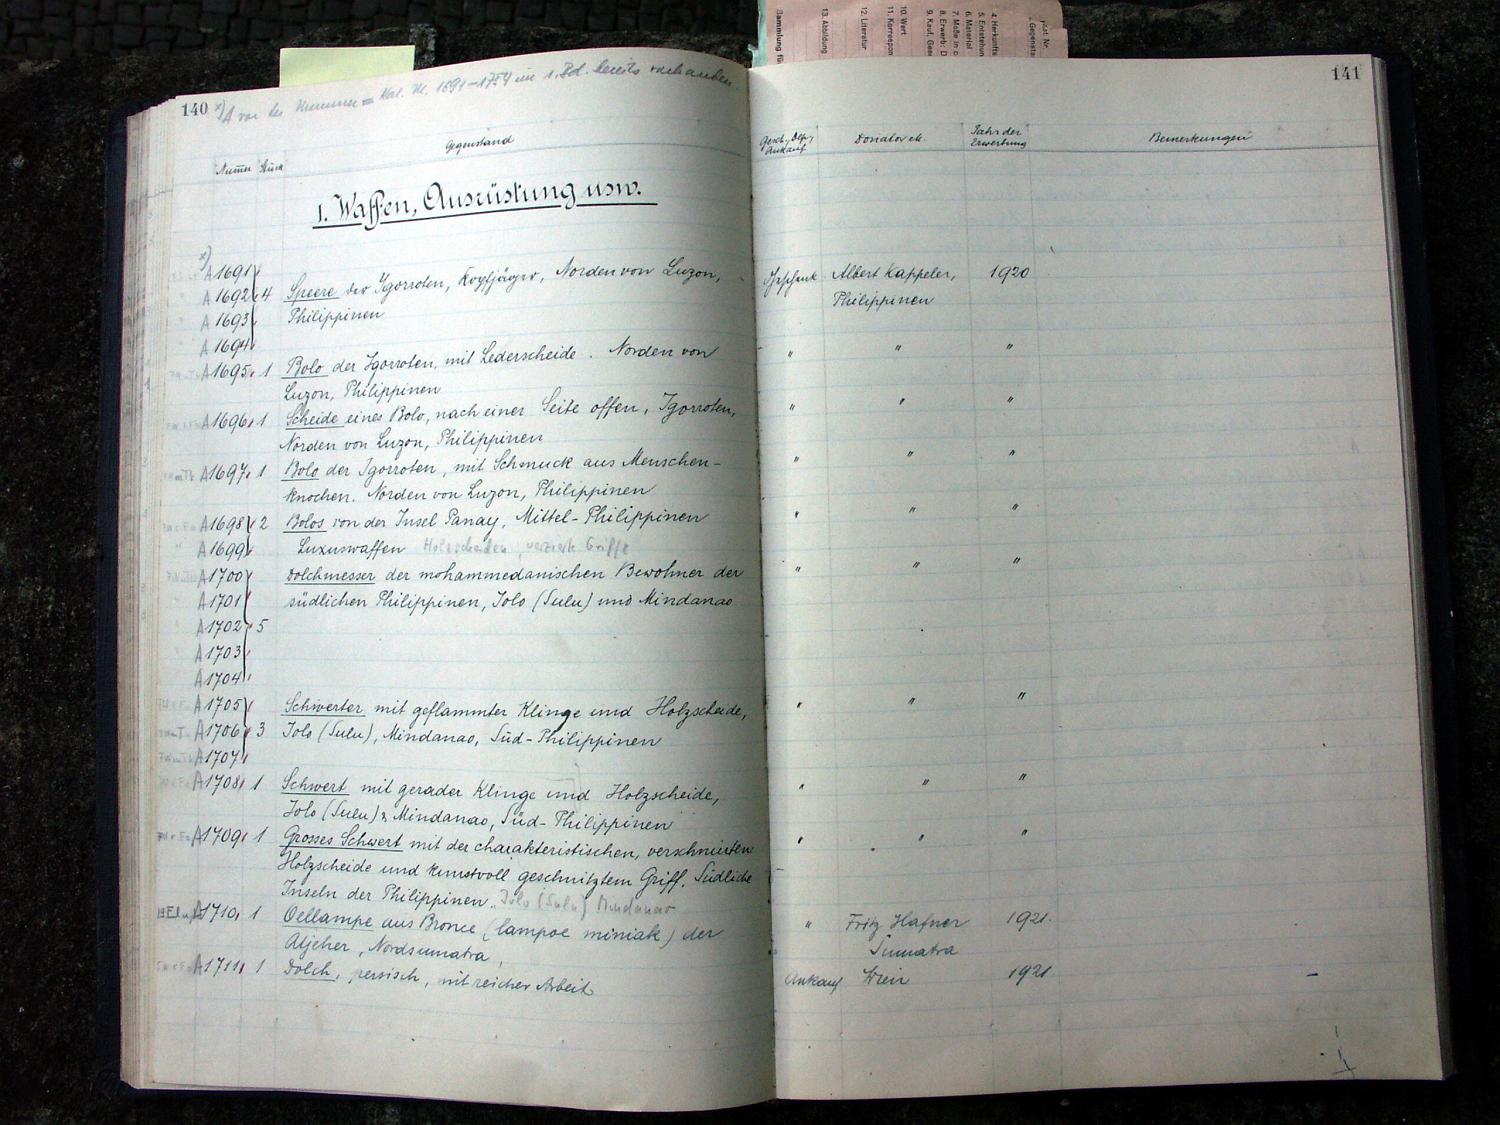 140
x) A vor der Nummer = Kat. Nr. 1691-1754 im 1. Bd. bereits vorhanden.
Numm Stück
Gegenstand
1. Waffen, Ausrüstung usw.
x)
A 1691
A 1692 4 Speere der Igorroten, Kopfjäger, Norden von Luzon,
A 1693 Philippinen
A 1694
A 1695 1 Bolo der Igorroten, mit Lederscheide. Norden von
Luzon, Philippinen
A 1696 1 Scheide eines Bolo, nach einer Seite offen, Igorroten,
Norden von Luzon, Philippinen
A 1697 1 Bolo der Igorroten, mit Schmuck aus Menschen-
knochen. Norden von Luzon, Philippinen
A 1698 2 Bolos von der Insel Panay, Mittel-Philippinen
A 1699 Luxuswaffen Holzscheiden, verzierte Griffe
A 1700 Dolchmesser der mohammedanischen Bewohner der
A 1701 südlichen Philippinen, Jolo (Sulu) und Mindanao
A 1702 5
A 1703
A 1704
A 1705 Schwerter mit geflammter Klinge und Holzscheide,
A 1706 3 Jolo (Sulu), Mindanao, Süd-Philippinen
A 1707
A 1708 1 Schwert mit gerader Klinge und Holzscheide,
Jolo (Sulu) & Mindanao, Süd-Philippinen
A 1709 1 Grosses Schwert mit der charakteristischen, verschnürten
Holzscheide und kunstvoll geschnitztem Griff. Südliche
Inseln der Philippinen. Jolo (Sulu) Mindanao
A 1710 1 Oellampe aus Bronce (lampoe miniak) der
Atjeher, Nordsumatra,
A 1711 1 Dolch, persisch, mit reicher Arbeit
141
Gesch., Dep., Ankauf
Donator etc.
Jahr der Erwerbung
Bemerkungen
Geschenk Albert Kappeler, 1920
Philippinen
" " "
" " "
" " "
" " "
" " "
" " "
" " "
" " "
" Fritz Hafner 1921.
Sumatra
Ankauf Wien 1921
Sammlung fü
13. Abbildung
12. Literatur
11. Korrespon
10. Wert
9. Kauf, Ges
8. Erwerb: D
7. Maße in c
6. Material
5. Entstehun
4. Herkunfts
Gegensta
Kat. Nr.